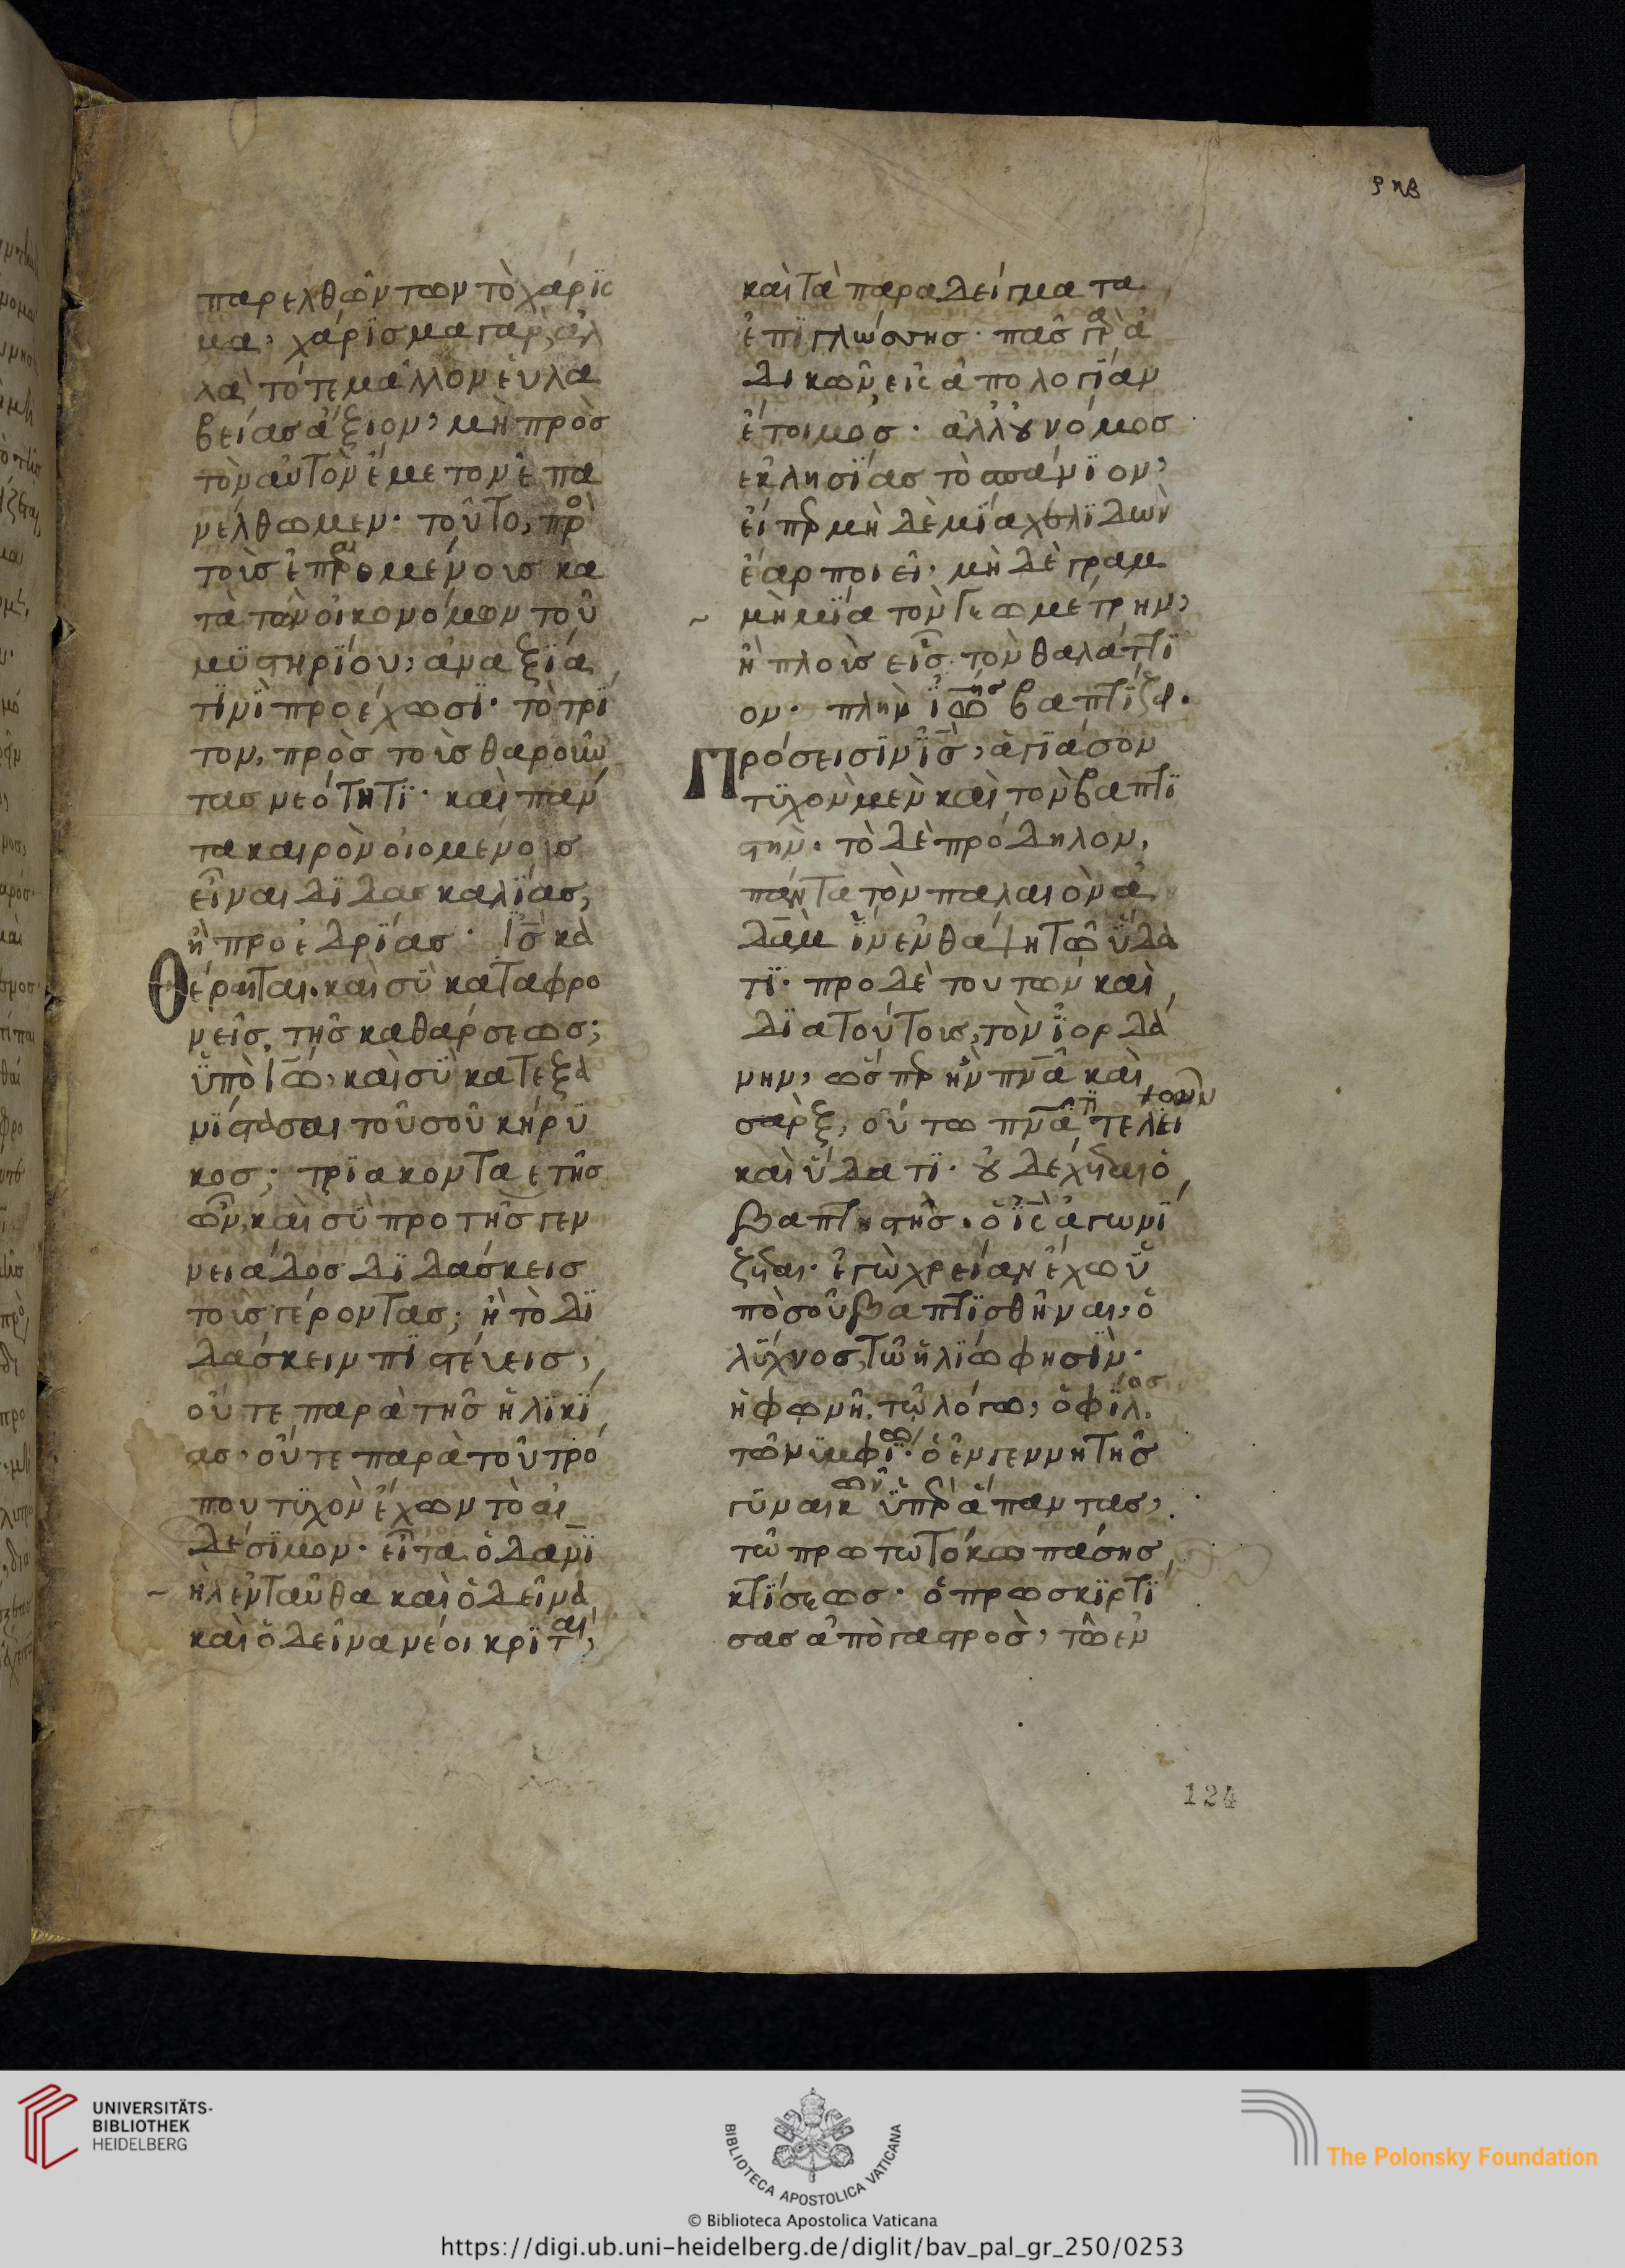 ρκβ
παρελθῶν των τὸ χάρϊς
μα, χάρϊσμα γαρ, ἀλ
λὰ τότε μᾶλλον ἐυλα
βείασ ἄξιον, μὴ πρὸσ
τὸν αὐτὸν ἔμετον ἐπα
νέλθωμεν· τοῦτο, πρὸ
τοὶσ ἐπαιρομένουσ κα
τὰ τῶν οἰκονόμων τοῦ
μϋστηρΐου, ἀν αξΐα
τϊνὶ προέχωσϊ· τὸ τρΐ
τον, πρὸσ τοὺσ θαροῦν
τασ νεότητϊ· καὶ πάν
τα καιρὸν οἰομένουσ
εἶναι δϊδασκαλΐασ,
ἢ προεδρΐασ· ΙΣ κα
θέρηται. καὶ σὺ καταφρο
νεῖσ τῆσ καθάρσεωσ;
ϋπὸ Ιω, καὶ σὺ κατεξα
νΐστασαι τοῦ σοῦ κήρϋ
κοσ; τρϊακονταετὴσ
ῶν, καὶ σὺ προ τῆσ γεν
νειάδοσ δϊδάσκεισ
τοὺσ γέρονταση; ἢ τὸ δϊ
δάσκειν πϊστέυεισ,
οὔτε παρὰ τῆσ ἡλϊκΐ
ασ, οὔτε παρὰ τοῦ τρό
που τϋχὸν ἔχων τὸ αἰ
δέσϊμον· εἶτα ὁ δανϊ
ὴλ ἐνταῦθα καὶ ὁ δεῖνα
καὶ ὁ δεῖνα νέοι κρϊταί,
καὶ τὰ παραδείγματα
ἐπὶ γλώσσησ· πᾶσ γὰρ ἀ
δικῶν εἰς ἀπολογΐαν
ἕτοιμοσ· ἀλλ' ου νόμοσ
εκλησΐασ τὸ σπάνϊον,
εἴπερ μὴ δὲ μΐα χελϊδὼν
ἔαρ ποιεῖ, μὴ δὲ γραμ
μὴ μΐα τὸν γεωμέτρην,
ἢ πλοὺσ εῖσ τὸν θαλάττϊ
ον· πλὴν ϊωησ βαπτΐζει.
Πρόσεισϊν ισ, ἁγϊάσον
τϋχὸν μὲν καὶ τὸν βαπτϊ
στὴν· τὸ δὲ πρόδηλον,
πάντα τὸν παλαιὸν ἀ
δὰμ ἵν' ἐνθάψη τῶ ὕδα
τϊ· προ δὲ τουτων καὶ
δϊα τούτουσ, τὸν ϊορδά
νην, ὥσπερ ἦν πνα καὶ
σάρξ, οὕτω πνατι τελϊειων
καὶ ὕδατϊ· ου δέχεται ὁ
βαπτηστὴσ. ὁ ισ ἀγωνΐ
ζεται· ἐγὼ χρείαν ἔχω ὑ
πὸ σοῦ βαπτϊσθῆναι, ὁ
λϋχνοσ, τῶ ἡλΐω φησΐν·
ἡ φωνὴ, τῶ λόγω, ὁ φΐλοσ.
τῶ νϊμφϊω· ὁ ἐν γεννητῆσ
γϋναικῶν ὑπὲρ ἅπαντασ,
τῶ πρωτωτόκω πάσησ
κτΐσεωσ· ὁ πρωσκϊρτΐ
σασ ἀπὸ γαστροσ, τῶ ἐν
124
UNIVERSITÄTS-
BIBLIOTHEK
HEIDELBERG
BIBLIOTECA APOSTOLICA VATICANA
The Polonsky Foundation
© Biblioteca Apostolica Vaticana
https://digi.ub.uni-heidelberg.de/diglit/bav_pal_gr_250/0253